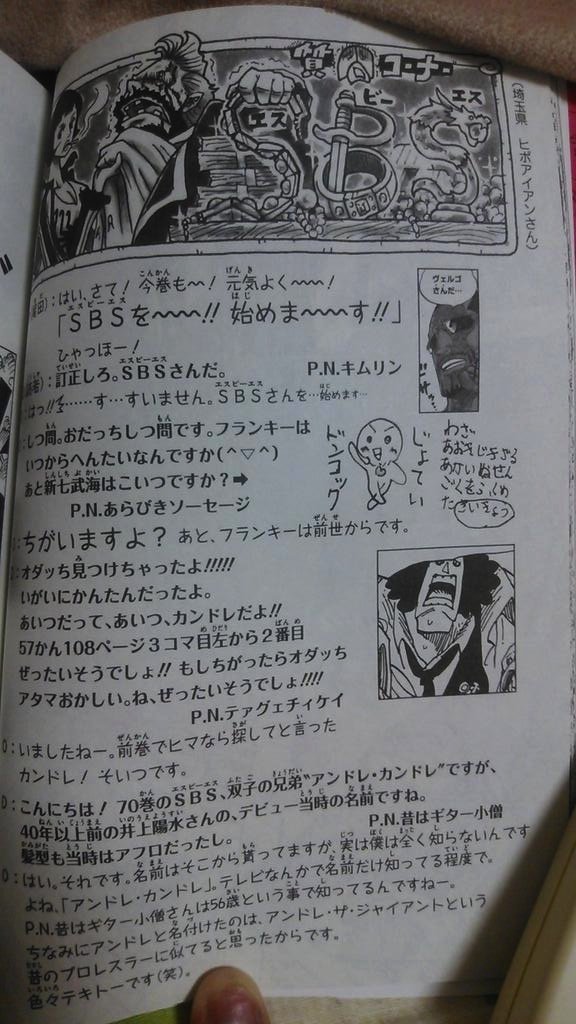 質問コーナー
エス ビー エス
SBS
(埼玉県 ヒポアイアンさん)
はい、さて! 今巻も〜! 元気よく〜〜!
「SBSを〜〜〜!! 始めま〜〜〜す!!」
ヴェルゴさんだ…
ひゃっほー!
訂正しろ。SBSさんだ。 P.N.キムリン
はっ!! す…すいません。SBSさんを…始めます…
しつ問。おだっちしつ問です。フランキーは
いつからへんたいなんですか(^▽^)
あと新七武海はこいつですか?➡
P.N.あらびきソーセージ
ドンコック
じょてい
わざ
ちがいますよ? あと、フランキーは前世からです。
D:オダッち見つけちゃったよ!!!!!
いがいにかんたんだったよ。
あいつだって、あいつ、カンドレだよ!!
57かん108ページ3コマ目左から2番目
ぜったいそうでしょ!! もしちがったらオダッち
アタマおかしい。ね、ぜったいそうでしょ!!!!
P.N.テアグェチィケイ
O:いましたねー。前巻でヒマなら探してと言った
カンドレ! そいつです。
D:こんにちは! 70巻のSBS、双子の兄弟"アンドレ・カンドレ"ですが、
40年以上前の井上陽水さんの、デビュー当時の名前ですね。
髪型も当時はアフロだったし。 P.N.昔はギター小僧
O:はい。それです。名前はそこから貰ってますが、実は僕は全く知らないんです
よね、「アンドレ・カンドレ」。テレビなんかで名前だけ知ってる程度で。
P.N.昔はギター小僧さんは56歳という事で知ってるんですねー。
ちなみにアンドレと名付けたのは、アンドレ・ザ・ジャイアントという
昔のプロレスラーに似てると思ったからです。
色々テキトーです(笑)。